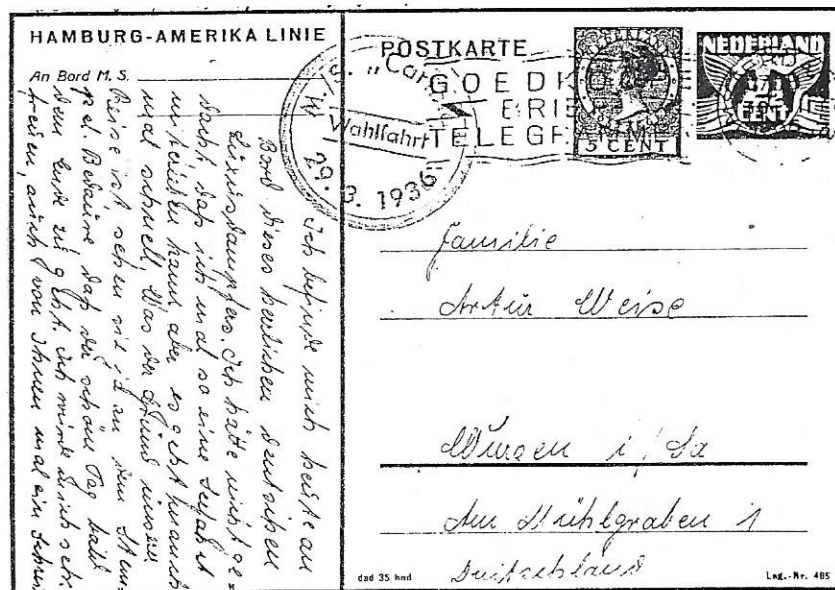 HAMBURG-AMERIKA LINIE
An Bord M. S.
Ich befinde mich heute an
Bord dieses herrlichen deutschen
Luxusdampfers. Ich hätte nicht ge=
dacht daß ich mal so eine Seefahrt
mitmachen kann aber es geht manch
mal schnell. Was der Grund unserer
Reise ist sehen sie ja an dem Stem-
pel. Bedaure daß der schöne Tag bald
dem Ende zu geht. Ich würde mich sehr
freuen, auch von Ihnen mal ein
M.S. „Car
Wahlfahrt
29. 3. 1936
POSTKARTE
GOEDKOPE
BRIEF
TELEGRAMMEN
5 CENT
NEDERLAND
CENT
Familie
Artur Weise
Wurzen i/Sa
Am Mühlgraben 1
Deutschland
dad 35 hnd
Lag.-Nr. 485